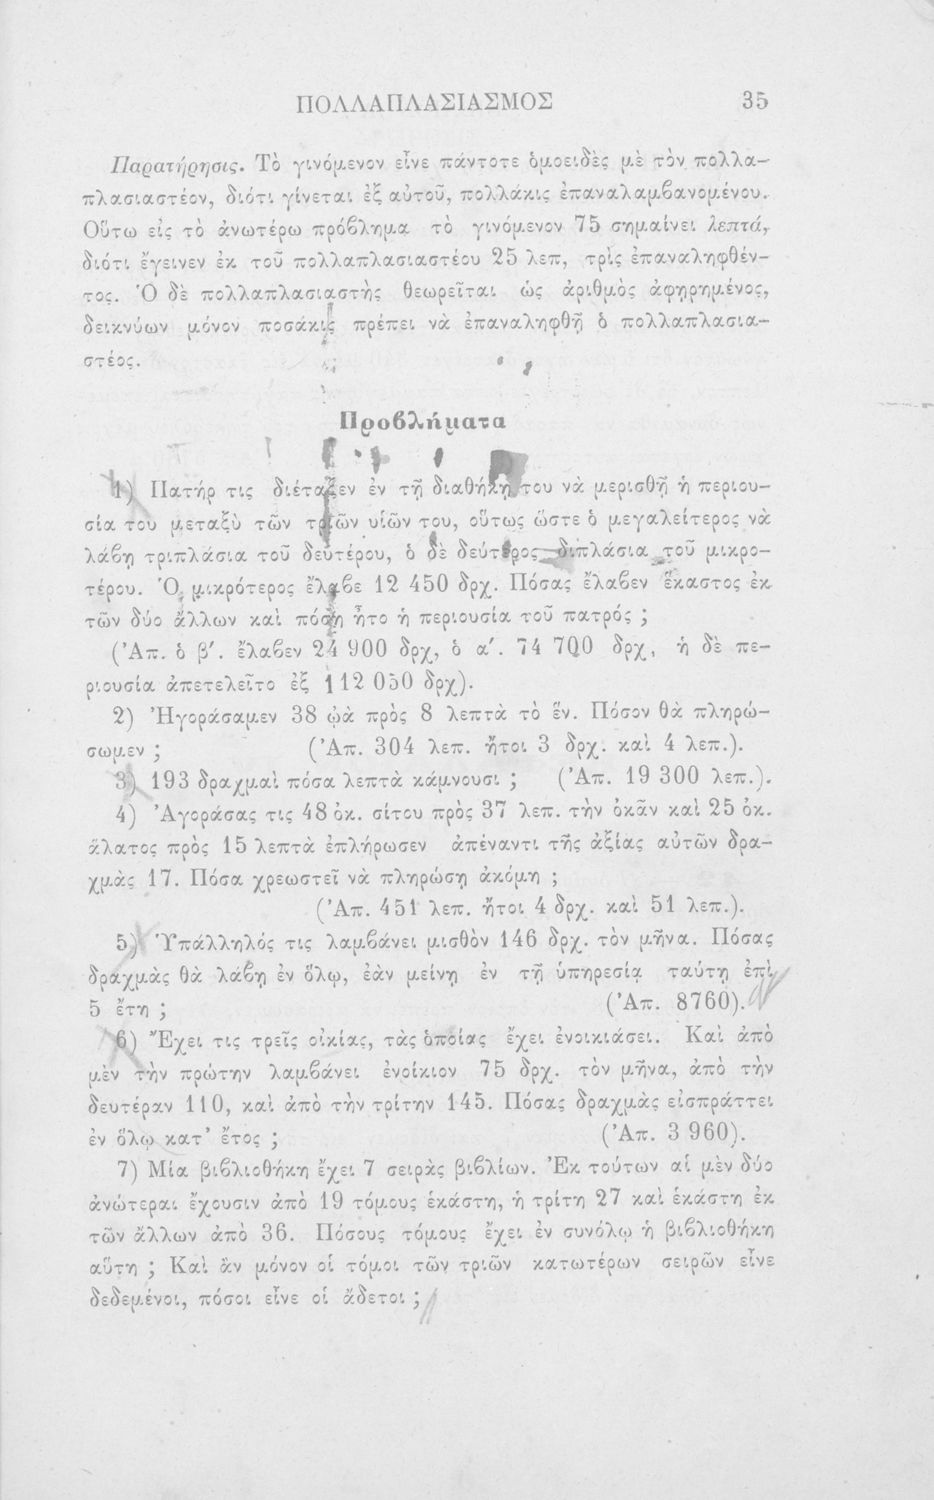 ΠΟΛΛΑΠΛΑΣΙΑΣΜΟΣ 35
Παρατήρησις. Τὸ γινόμενον εἶνε πάντοτε ὁμοειδὲς μὲ τὸν πολλα-
πλασιαστέον, διότι γίνεται ἐξ αὐτοῦ, πολλάκις ἐπαναλαμβανομένου.
Οὕτω εἰς τὸ ἀνωτέρω πρόβλημα τὸ γινόμενον 75 σημαίνει λεπτά,
διότι ἔγεινεν ἐκ τοῦ πολλαπλασιαστέου 25 λεπ, τρὶς ἐπαναληφθέν-
τος. Ὁ δὲ πολλαπλασιαστὴς θεωρεῖται ὡς ἀριθμὸς ἀφῃρημένος,
δεικνύων μόνον ποσάκις πρέπει νὰ ἐπαναληφθῇ ὁ πολλαπλασια-
στέος.
Προβλήματα
1) Πατήρ τις διέταξεν ἐν τῇ διαθήκῃ του νὰ μερισθῇ ἡ περιου-
σία του μεταξὺ τῶν τριῶν υἱῶν του, οὕτως ὥστε ὁ μεγαλείτερος νὰ
λάβῃ τριπλάσια τοῦ δευτέρου, ὁ δὲ δεύτερος διπλάσια τοῦ μικρο-
τέρου. Ὁ μικρότερος ἔλαβε 12 450 δρχ. Πόσας ἔλαβεν ἕκαστος ἐκ
τῶν δύο ἄλλων καὶ πόση ἦτο ἡ περιουσία τοῦ πατρός ;
(Ἀπ. ὁ β′. ἔλαβεν 24 900 δρχ, ὁ α′. 74 700 δρχ, ἡ δὲ πε-
ριουσία ἀπετελεῖτο ἐξ 112 050 δρχ).
2) Ἠγοράσαμεν 38 ᾠὰ πρὸς 8 λεπτὰ τὸ ἕν. Πόσον θὰ πληρώ-
σωμεν ; (Ἀπ. 304 λεπ. ἤτοι 3 δρχ. καὶ 4 λεπ.).
3) 193 δραχμαὶ πόσα λεπτὰ κάμνουσι ; (Ἀπ. 19 300 λεπ.).
4) Ἀγοράσας τις 48 ὀκ. σίτου πρὸς 37 λεπ. τὴν ὀκᾶν καὶ 25 ὀκ.
ἅλατος πρὸς 15 λεπτὰ ἐπλήρωσεν ἀπέναντι τῆς ἀξίας αὐτῶν δρα-
χμὰς 17. Πόσα χρεωστεῖ νὰ πληρώσῃ ἀκόμη ;
(Ἀπ. 451 λεπ. ἤτοι 4 δρχ. καὶ 51 λεπ.).
5) Ὑπάλληλός τις λαμβάνει μισθὸν 146 δρχ. τὸν μῆνα. Πόσας
δραχμὰς θὰ λάβῃ ἐν ὅλῳ, ἐὰν μείνῃ ἐν τῇ ὑπηρεσίᾳ ταύτῃ ἐπὶ
5 ἔτη ; (Ἀπ. 8760).
6) Ἔχει τις τρεῖς οἰκίας, τὰς ὁποίας ἔχει ἐνοικιάσει. Καὶ ἀπὸ
μὲν τὴν πρώτην λαμβάνει ἐνοίκιον 75 δρχ. τὸν μῆνα, ἀπὸ τὴν
δευτέραν 110, καὶ ἀπὸ τὴν τρίτην 145. Πόσας δραχμὰς εἰσπράττει
ἐν ὅλῳ κατ' ἔτος ; (Ἀπ. 3 960).
7) Μία βιβλιοθήκη ἔχει 7 σειρὰς βιβλίων. Ἐκ τούτων αἱ μὲν δύο
ἀνώτεραι ἔχουσιν ἀπὸ 19 τόμους ἑκάστη, ἡ τρίτη 27 καὶ ἑκάστη ἐκ
τῶν ἄλλων ἀπὸ 36. Πόσους τόμους ἔχει ἐν συνόλῳ ἡ βιβλιοθήκη
αὕτη ; Καὶ ἂν μόνον οἱ τόμοι τῶν τριῶν κατωτέρων σειρῶν εἶνε
δεδεμένοι, πόσοι εἶνε οἱ ἄδετοι ;